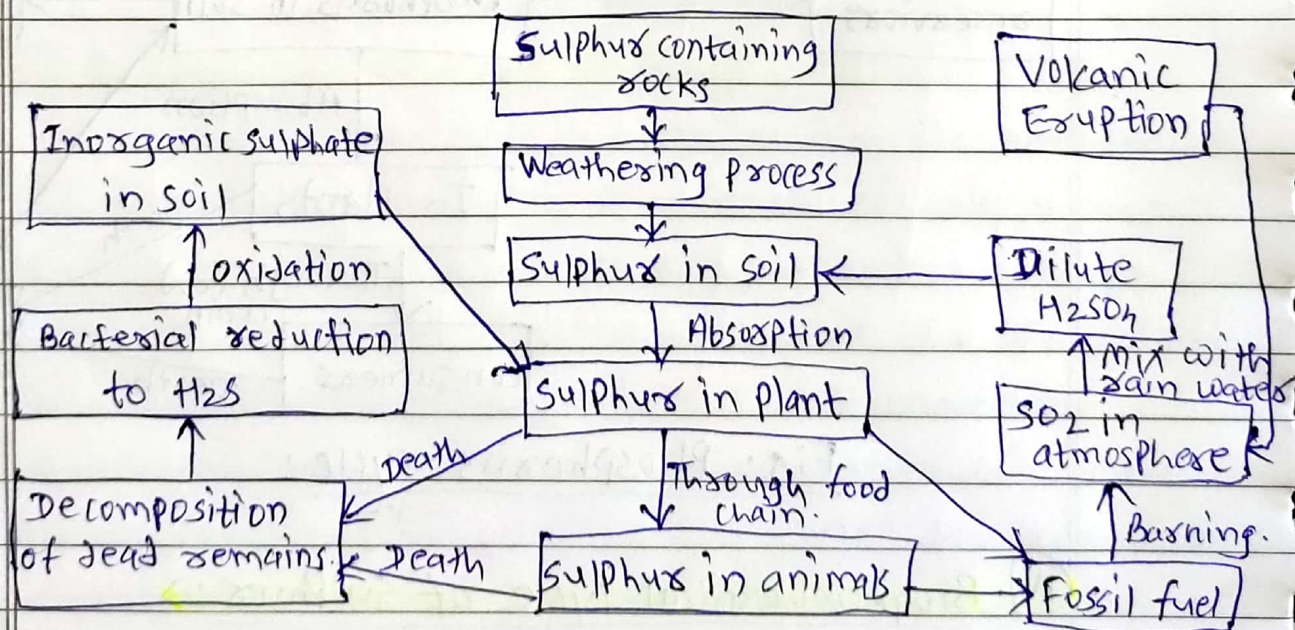 Sulphur containing
rocks
Volkanic
Eruption
Inorganic sulphate
in soil
Weathering process
oxidation
Sulphur in soil
Dilute
H2SO4
Bacterial reduction
to H2S
Absorption
mix with
rain water
Sulphur in plant
SO2 in
atmosphere
Death
Through food
chain.
Decomposition
of dead remains.
Death
Sulphur in animals
Burning.
Fossil fuel